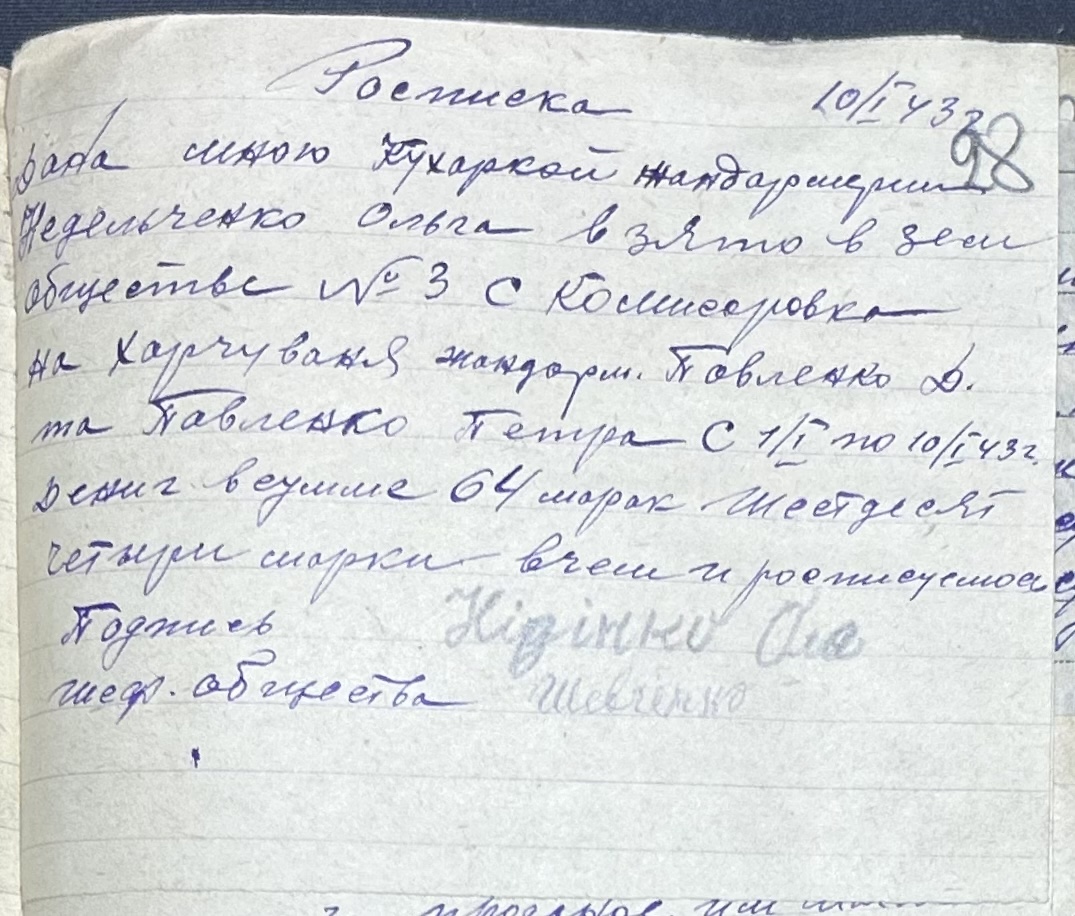 Росписка 10/I 43 г
98
Дана мною Кухаркой жандармерии
Недельченко Ольга взято в зем
обществе № 3 с Комисаровка
на Харчуваня жандарм. Павленко Д.
та Павленко Петра с 1/I по 10/I 43 г.
Дениг в сумме 64 марак Шестдесят
четыри марки вчем и росписуемся
Подпись
шеф. общества Шевченко